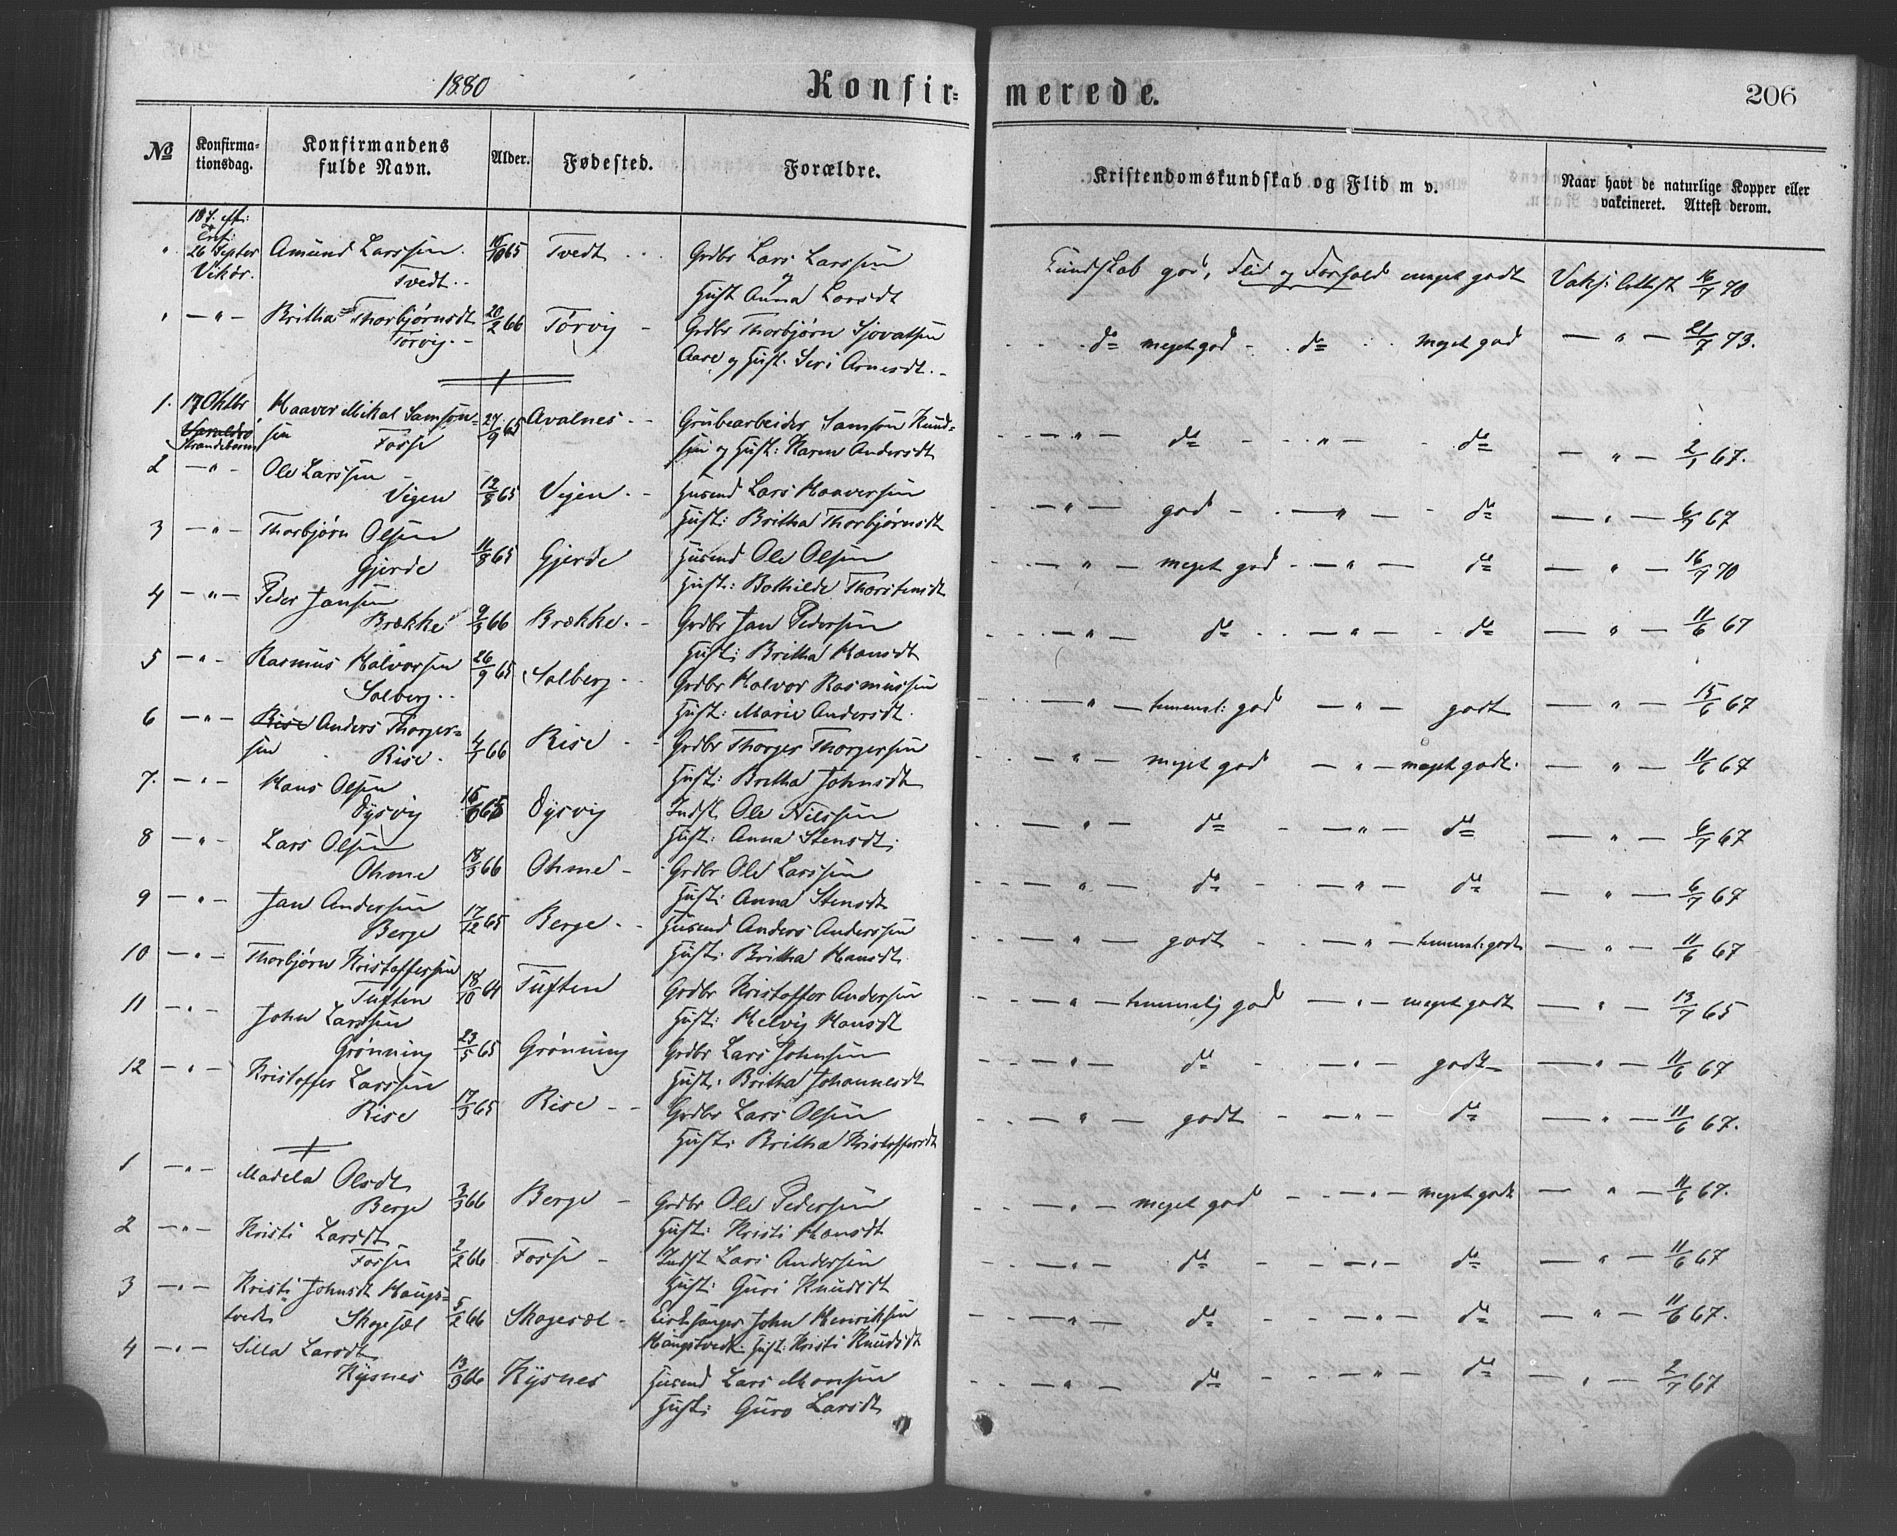 1880 Konfir- merede. 206
No Konfirma-tionsdag. Konfirmandens fulde Navn. Alder. Fødested. Forældre. Kristendomskundskab og Flid m v. Naar havt de naturlige Kopper eller vakcineret. Attest derom.
26 Septbr Vikør. Amund Larssen Tvedt 65 Tvedt Grdbr Lars Larssen og Hust Anna Larsdt Kundskab god, Flid og Forhold meget godt Vaks: Attest 16/7 70
" — " — Britha Thorbjørnsdt Torvig 20/2 66 Torvig Grdbr Thorbjørn Sjovatsen Aare og Hust. Siri Arnesdt. do meget god do meget god — " — 21/7 73.
1. 17 Oktbr Strandebarm Haaver Mikal Samson-sen Fosse 27/9 65 Avalnes Grubearbeider Samson Knud-sen og Hust: Karen Andersdt — " — do — " — do — " — 2/1 67.
2 — " — Ole Larssen Vigen 12/8 65 Vigen Husmd Lars Haaversen Hust: Britha Thorbjørnsdt — " — god — " — do — " — 6/7 67
3 — " — Thorbjørn Olsen Gjerde 11/8 65 Gjerde Husmd Ole Olsen Hust: Bothilde Thorstensdt — " — meget god — " — do — " — 16/7 70
4 — " — Peder Jansen Brække 9/3 66 Brække Grdbr Jan Pedersen Hust: Britha Hansdt — " — do — " — do — " — 11/6 67
5 — " — Rasmus Halvorsen Solberg 26/9 65 Solberg Grdbr Halvor Rasmussen Hust: Marie Andersdt. — " — temmel: god — " — godt — " — 15/6 67
6 — " — Rise Anders Thorger-sen Rise 4/1 66 Rise Grdbr Thorger Thorgersen Hust: Britha Johnsdt — " — meget god — " — meget godt. — " — 11/6 67
7. — " — Hans Olsen Dysvig 65 Dysvig Indst Ole Nilssen Hust: Anna Stensdt. — " — do — " — do — " — 6/7 67
8 — " — Lars Olsen Ohme 18/3 66 Ohme Grdbr Ole Larssen Hust: Anna Stensdt — " — do — " — do — " — 6/7 67
9 — " — Jan Andersen Berge 17/12 65 Berge Husmd Anders Anderssen Hust: Britha Hansdt — " — godt — " — temmel: godt — " — 11/6 67
10 — " — Thorbjørn Kristoffersen Tuften 18/10 64 Tuften Grdbr Kristoffer Andersen Hust: Helvig Hansdt — " — temmelig god — " — meget godt — " — 13/7 65
11 — " — John Larssen Grønning 23/5 65 Grønning Grdbr Lars Johnsen Hust: Britha Johannesdt — " — do — " — godt — " — 11/6 67
12 — " — Kristoffer Larssen Rise 17/3 65 Rise Grdbr Lars Olsen Hust: Britha Kristoffersdt — " — godt — " — do — " — 11/6 67.
1 — " — Madela Olsdt Berge 3/3 66 Berge Grdbr Ole Pedersen Hust: Kristi Hansdt — " — meget god — " — meget godt — " — 11/6 67.
2 — " — Kristi Larsdt Fosse 2/2 66 Fosse Indst Lars Andersen Hust: Guri Knudsdt — " — do — " — do — " — 11/6 67
3 — " — Kristi Johnsdt Haugs-tvedt Skogesæl 5/2 66 Skogesæl Kirkesanger John Henriksen Haugstvedt Hust: Kristi Knudsdt — " — do — " — do — " — 11/6 67.
4 — " — Silla Larsdt Kysnes 13/3 66 Kysnes Husmd Lars Monsen Hust: Guro Larsdt — " — do — " — do — " — 2/7 67